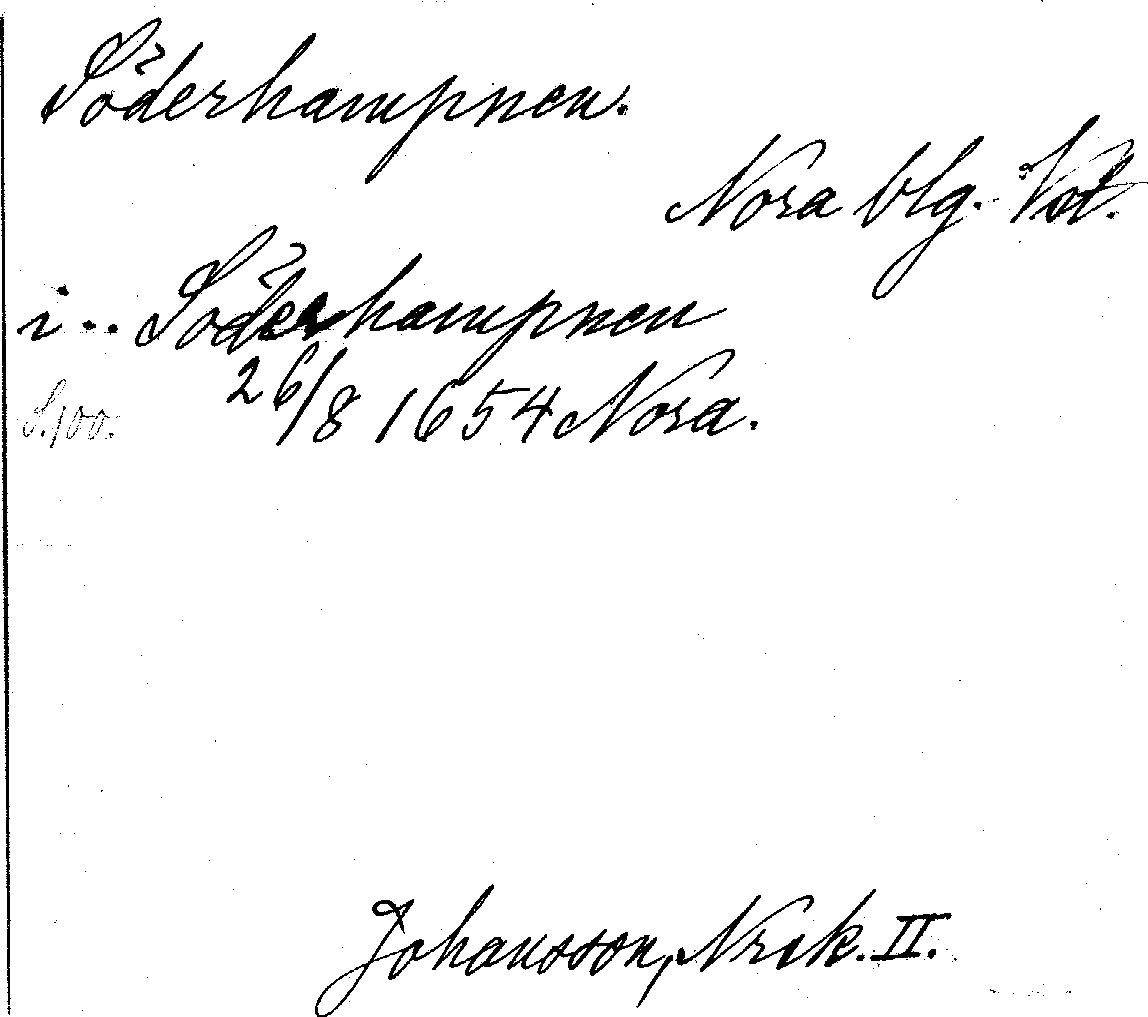 Söderhampnen.
Nora blg. Vst.
i .. Söderhampnen
S. 100. 26/8 1654 Nora.
Johansson, Nrik. II.